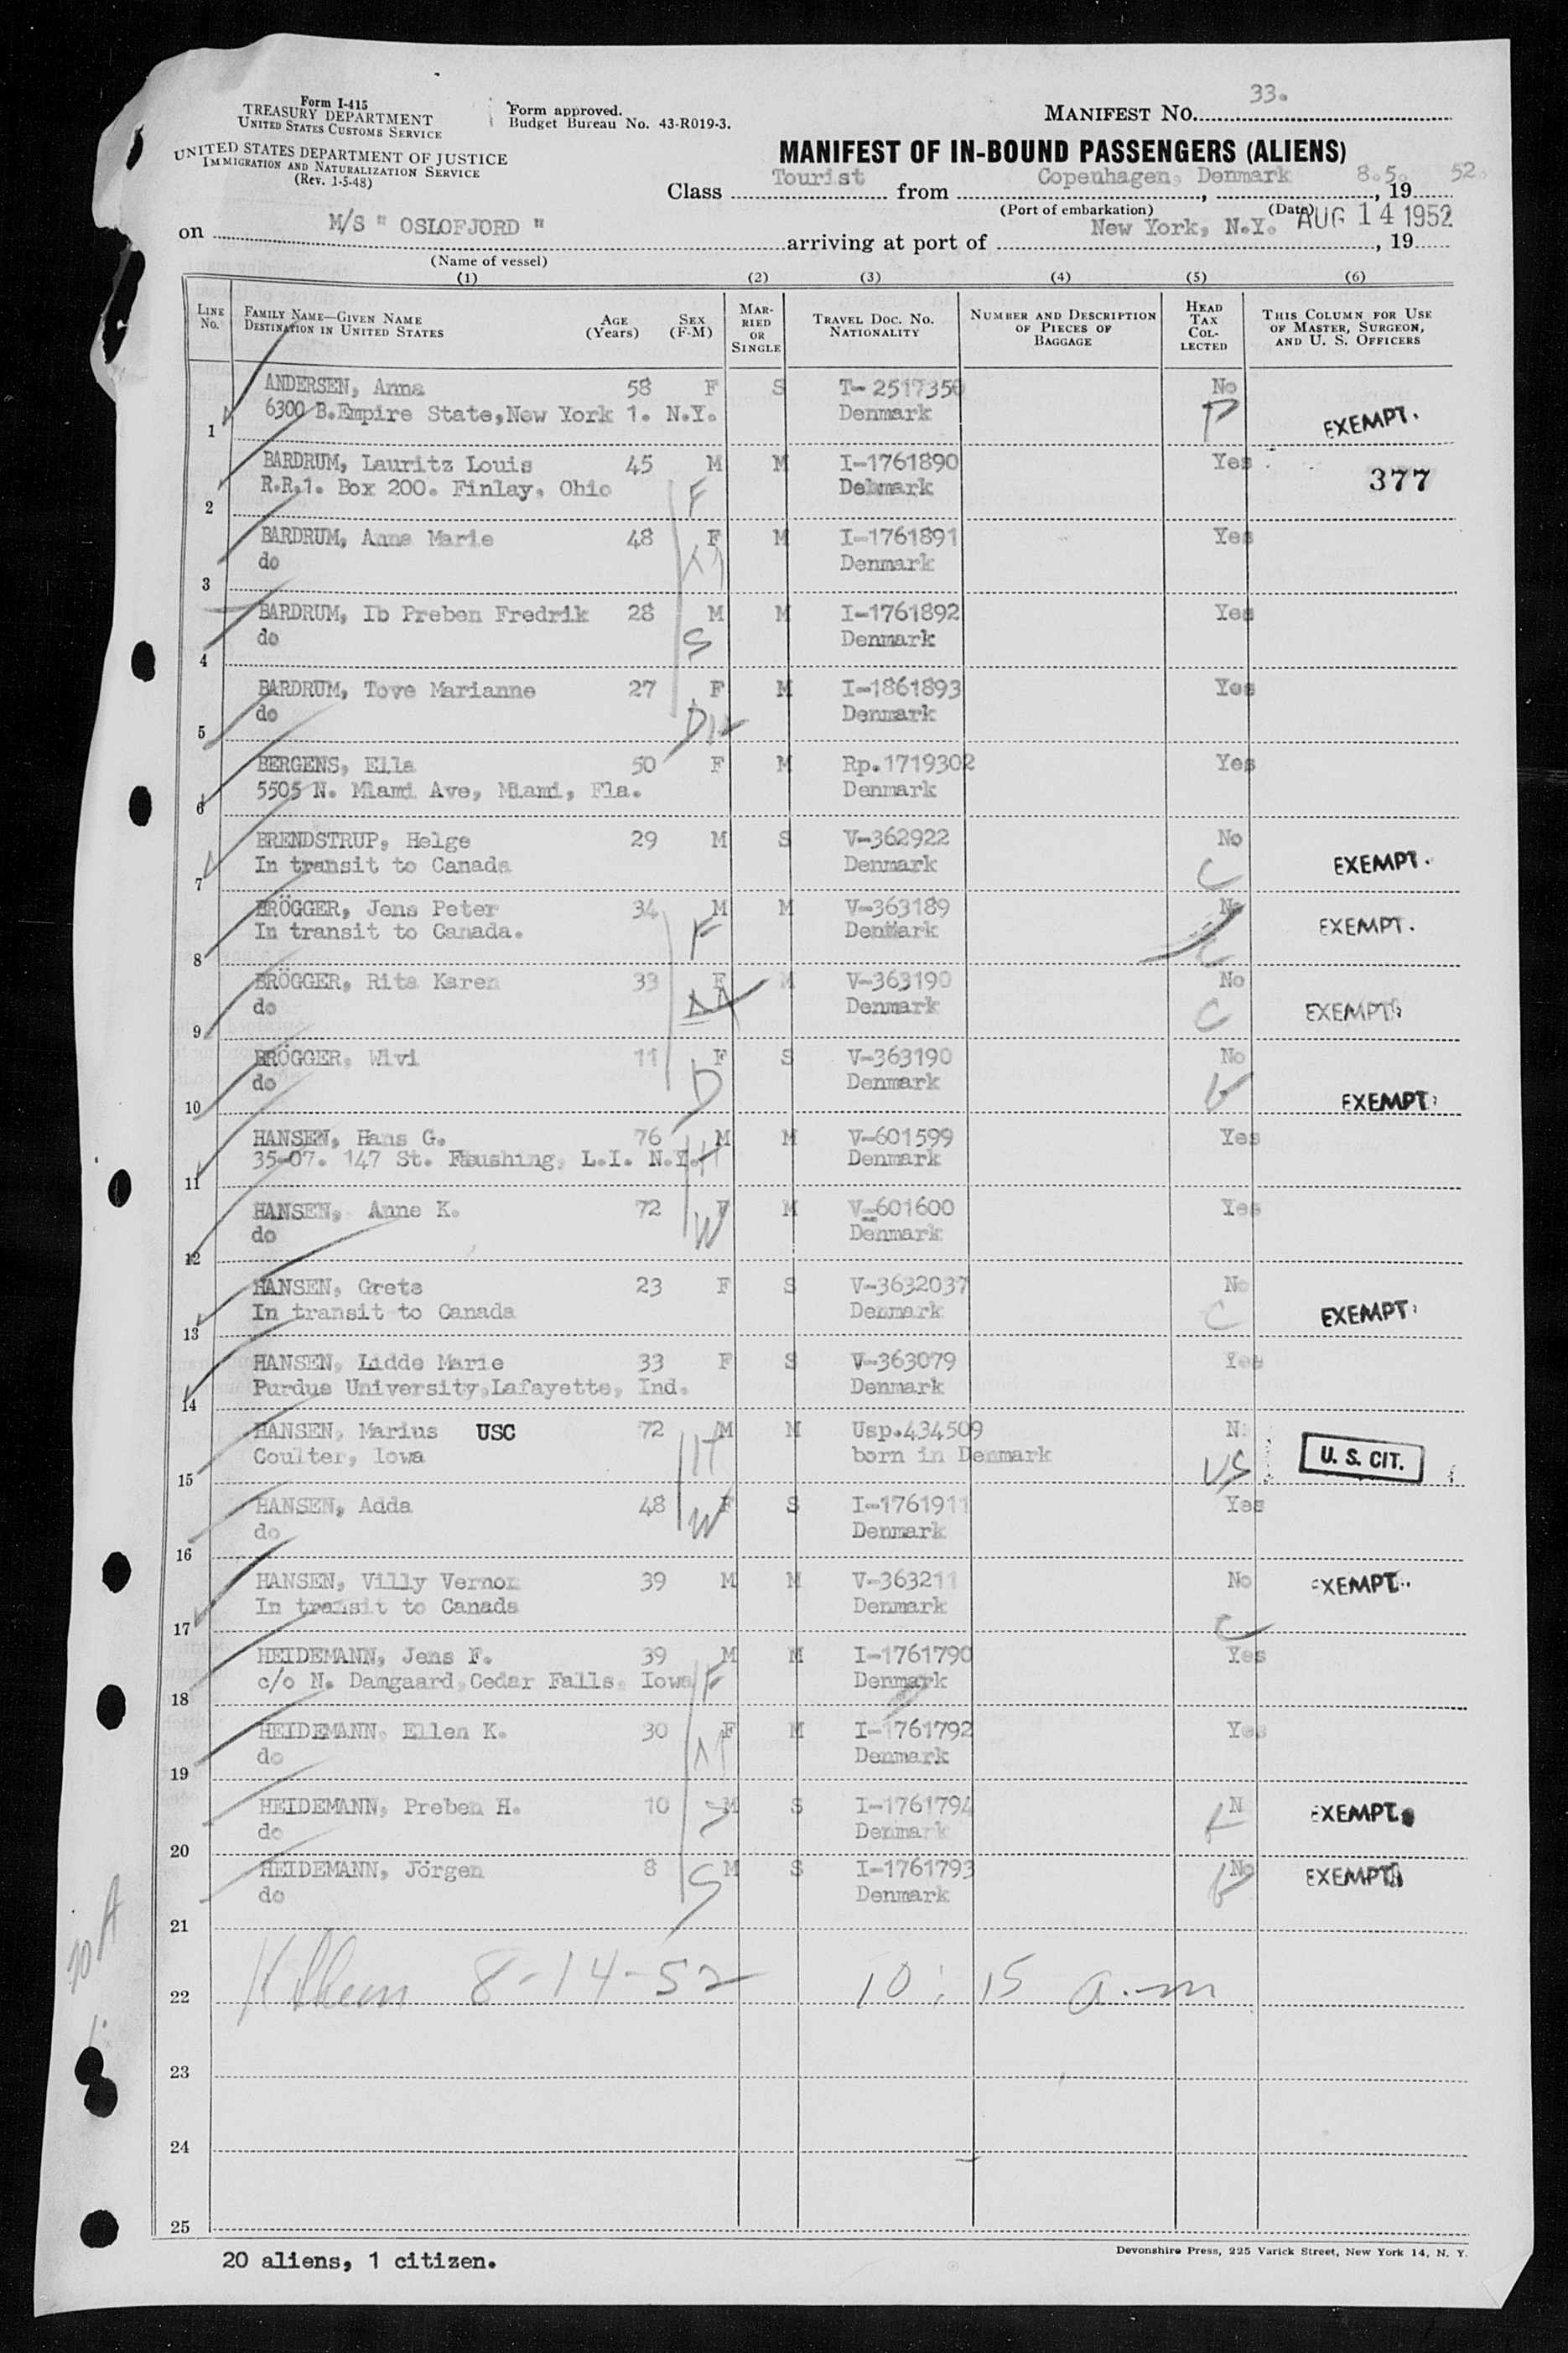 Form I-415
TREASURY DEPARTMENT
UNITED STATES CUSTOMS SERVICE
UNITED STATES DEPARTMENT OF JUSTICE
IMMIGRATION AND NATURALIZATION SERVICE
(Rev. 1-5-48)
Form approved.
Budget Bureau No. 43-R019-3.
MANIFEST NO. 33.
MANIFEST OF IN-BOUND PASSENGERS (ALIENS)
Class Tourist from Copenhagen, Denmark, 8.5., 19 52.
(Port of embarkation) (Date)
on M/S " OSLOFJORD " arriving at port of New York, N.Y. AUG 14 1952, 19
(Name of vessel)
(1) (2) (3) (4) (5) (6)
LINE NO. FAMILY NAME—GIVEN NAME DESTINATION IN UNITED STATES AGE (Years) SEX (F-M) MARRIED OR SINGLE TRAVEL DOC. NO. NATIONALITY NUMBER AND DESCRIPTION OF PIECES OF BAGGAGE HEAD TAX COLLECTED THIS COLUMN FOR USE OF MASTER, SURGEON, AND U. S. OFFICERS
ANDERSEN, Anna 58 F S T- 2517350 No
1 6300 B.Empire State,New York 1. N.Y. Denmark P EXEMPT.
BARDRUM, Lauritz Louis 45 M M I-1761890 Yes 377
2 R.R.1. Box 200. Finlay, Ohio F Denmark
BARDRUM, Anna Marie 48 F M I-1761891 Yes
3 do M Denmark
BARDRUM, Ib Preben Fredrik 28 M M I-1761892 Yes
4 do S Denmark
BARDRUM, Tove Marianne 27 F M I-1861893 Yes
5 do Denmark
BERGENS, Ella 50 F M Rp.1719302 Yes
6 5505 N. Miami Ave, Miami, Fla. Denmark
BRENDSTRUP, Helge 29 M S V-362922 No
7 In transit to Canada Denmark C EXEMPT.
BRÖGGER, Jens Peter 34 M M V-363189 No
8 In transit to Canada. F Denmark C EXEMPT.
BRÖGGER, Rita Karen 33 F M V-363190 No
9 do M Denmark C EXEMPT
BRÖGGER, Wivi 11 F S V-363190 No
10 do D Denmark EXEMPT
HANSEN, Hans G. 76 M M V-601599 Yes
11 35-07. 147 St. Flushing, L.I. N.Y. H Denmark
HANSEN, Anne K. 72 F M V-601600 Yes
12 do W Denmark
HANSEN, Grete 23 F S V-3632037 No
13 In transit to Canada Denmark C EXEMPT
HANSEN, Lidde Marie 33 F S V-363079 Yes
14 Purdue University,Lafayette, Ind. Denmark
HANSEN, Marius USC 72 M M Usp.434509 N
15 Coulter, Iowa H born in Denmark US U. S. CIT.
HANSEN, Adda 48 F S I-1761911 Yes
16 do W Denmark
HANSEN, Villy Vernon 39 M M V-363211 No EXEMPT.
17 In transit to Canada Denmark C
HEIDEMANN, Jens F. 39 M M I-1761790 Yes
18 c/o N. Damgaard,Cedar Falls, Iowa F Denmark
HEIDEMANN, Ellen K. 30 F M I-1761792 Yes
19 do M Denmark
HEIDEMANN, Preben H. 10 M S I-1761794 N EXEMPT.
20 do S Denmark
HEIDEMANN, Jörgen 8 M S I-1761793 No EXEMPT
21 do S Denmark
22 8-14-52 10:15 a.m
23
24
25
20 aliens, 1 citizen.
Devonshire Press, 225 Varick Street, New York 14, N. Y.